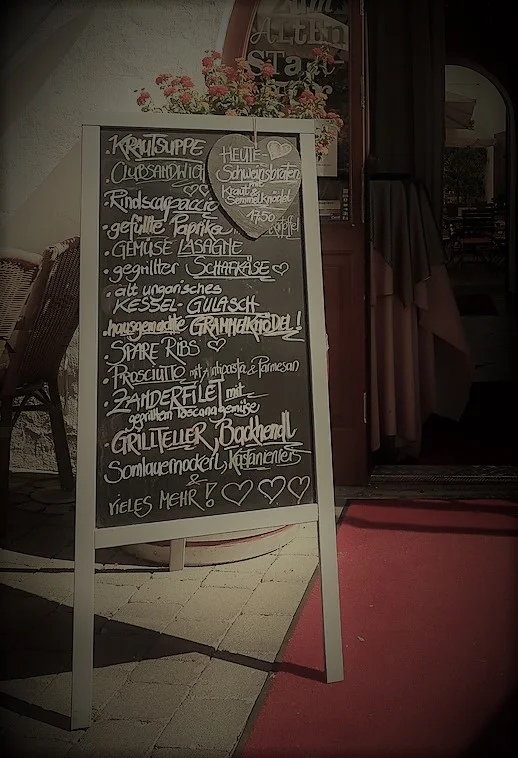 Zum
Alten
Stadt-
KRAUTSUPPE
CLUBSANDWICH
Rindscarpaccio
gefüllte Paprika
GEMÜSE LASAGNE
gegrillter SCHAFKÄSE
alt ungarisches
KESSEL-GULASCH
hausgemachte GRAMMELKNÖDEL!
SPARE RIBS
PROSCIUTTO mit Antipasta & Parmesan
ZANDERFILET mit
gegrillten Toscanagemüse
GRILLTELLER, Backhendl
Somlauernockerl, Kastanieneis
&
VIELES MEHR!
HEUTE-
Schweinsbraten
mit
Kraut &
Semmelknödel
17.50